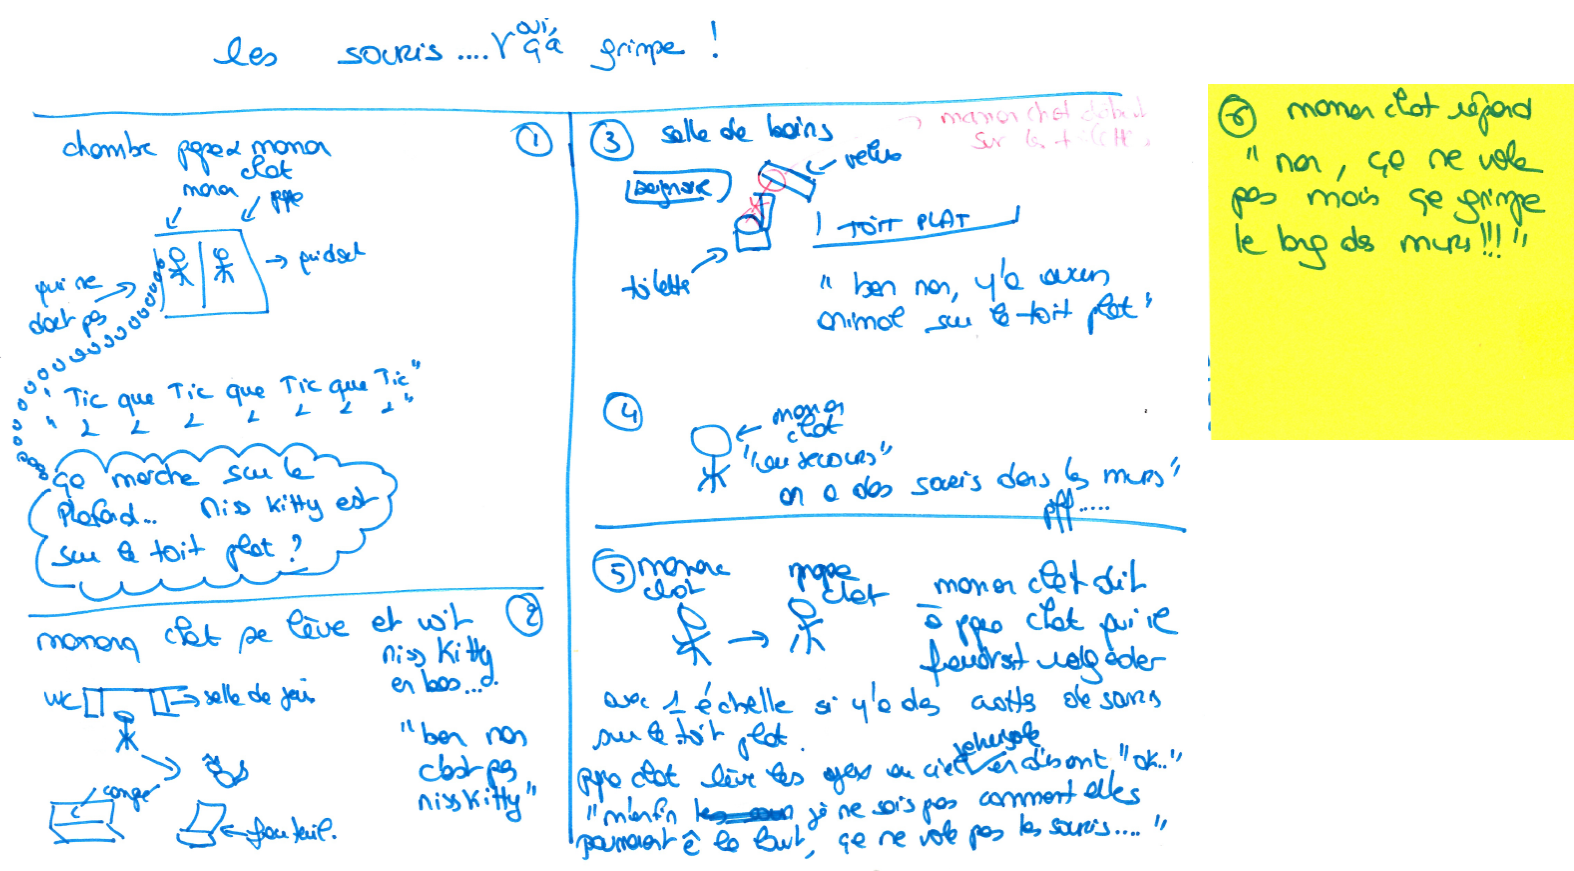 les souris.... oui, ça grimpe !
①
chambre papa & maman
chat
maman
papa
qui dort
qui ne
dort pas
" Tic que Tic que Tic que Tic "
ça marche sur le
plafond... Miss Kitty est
sur le toit plat ?
②
maman chat se lève et voit
Miss Kitty
en bas...
WC
salle de jeu
canapé
fauteuil.
" ben non
c'est pas
Miss Kitty "
③ salle de bains
maman chat debout
sur la toilette
velux
baignoire
TOIT PLAT
toilette
" ben non, y'a aucun
animal sur le toit plat "
④
maman
chat
" au secours "
on a des souris dans les murs "
pff.....
⑤ maman papa
chat chat
maman chat dit
à papa chat qu'il
faudrait regarder
avec 1 échelle si y'a des crottes de souris
sur le toit plat.
papa chat lève les yeux au ciel en disant "ok.."
" m'enfin je ne sais pas comment elles
pourraient ê là haut, ça ne vole pas les souris.... "
⑥ maman chat répond
" non, ça ne vole
pas mais ça grimpe
le long des murs!!! "